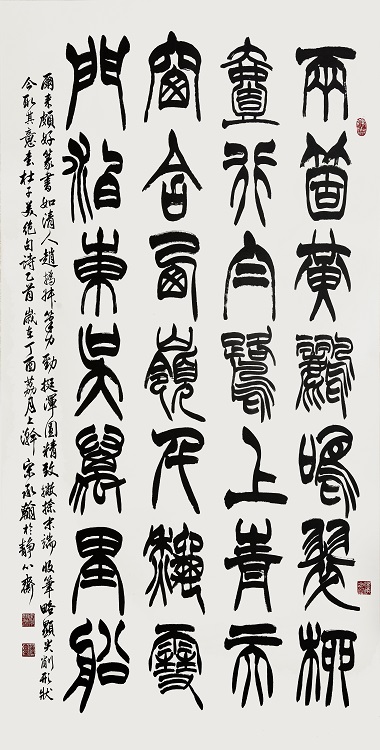 兩箇黃鸝鳴翠柳
壹行白鷺上青天
窗含西嶺千秋雪
門泊東吳萬里船
爾來頗好篆書如清人趙撝叔筆力勁挺渾圓精致撇捺末端收筆略顯尖削形狀
今取其意書杜子美絕句詩一首歲在丁酉荔月上澣宋承瀚於靜心齋